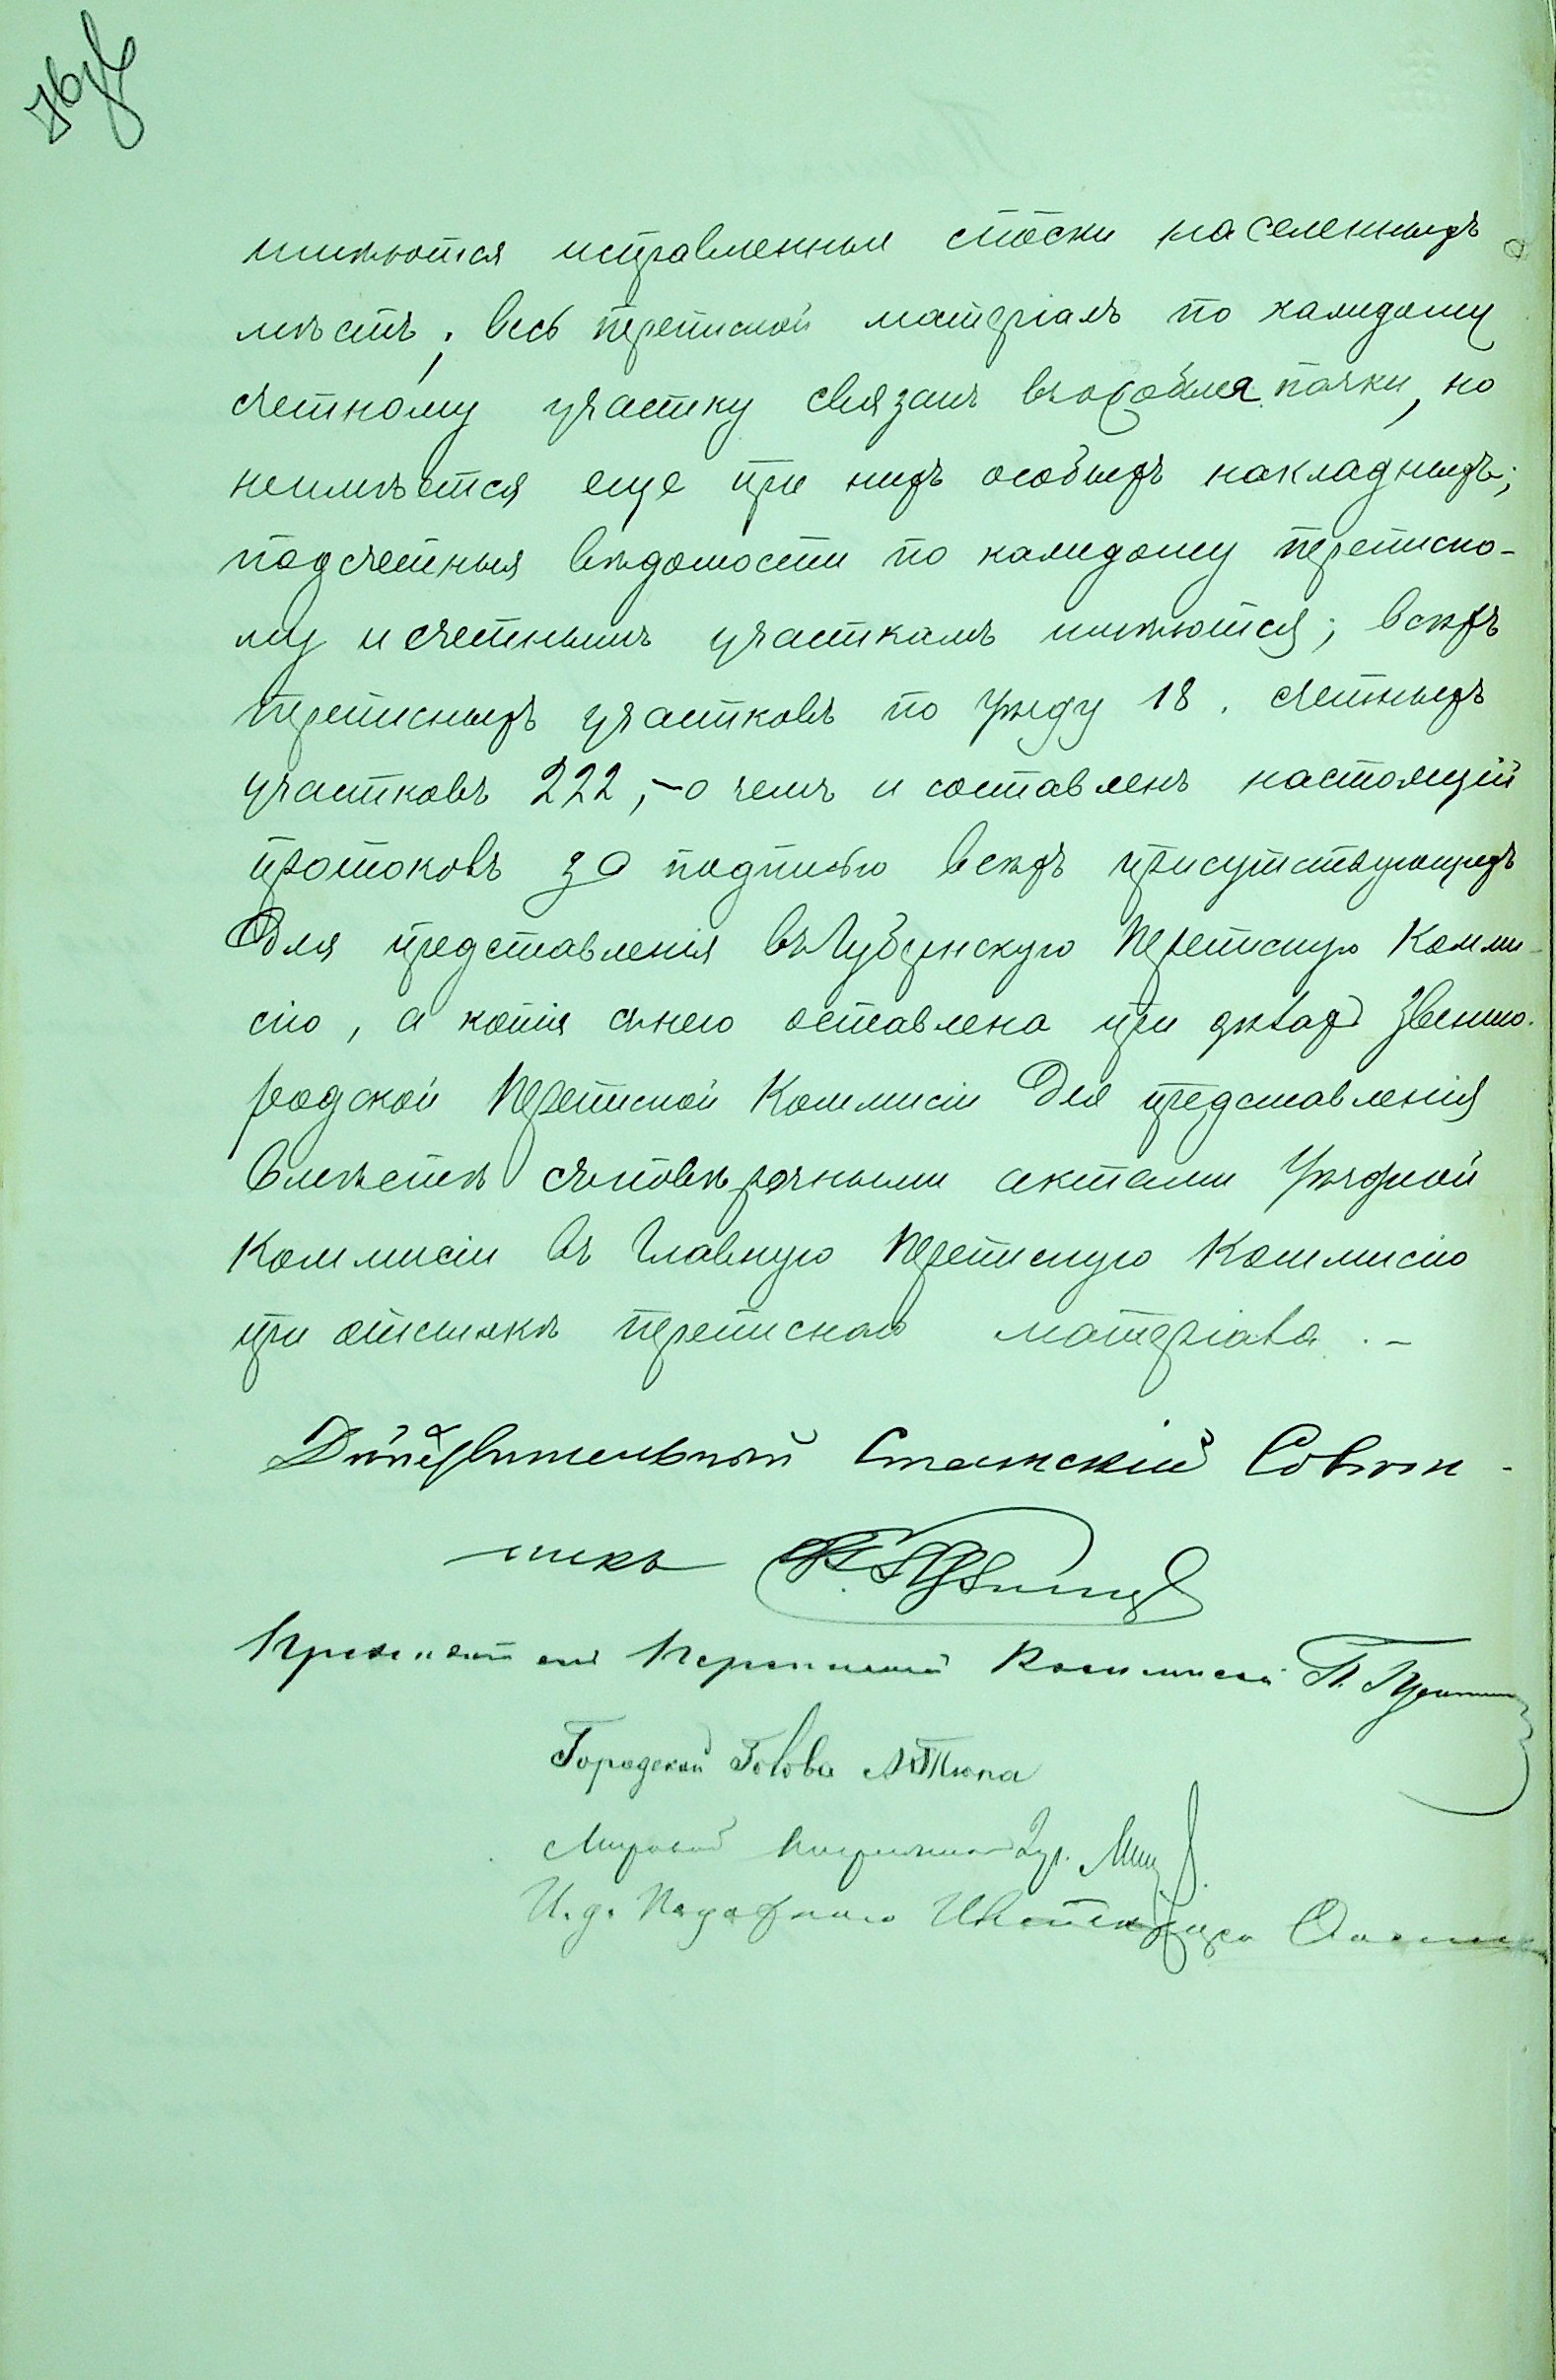 имѣются исправленные списки населенныхъ
мѣстъ; весь переписной матеріалъ по каждому
счетному участку связанъ въ особыя пачки, но
неимѣется еще при нихъ особыхъ накладныхъ;
подсчетныя вѣдомости по каждому переписно-
му и счетнымъ участкамъ имѣются; всѣхъ
переписныхъ участковъ по уѣзду 18. счетныхъ
участковъ 222, – о чемъ и составленъ настоящій
протоколъ за подписью всѣхъ присутствующихъ
для представленія въ Губернскую Переписную Комми-
сію, а копія снего оставлена при дѣлахъ Звенио-
родской Переписной Коммисіи для представленія
вмѣстѣ съ повѣрочными актами Уѣздной
Коммисіи въ Главную Переписную Коммисію
при отсылкѣ переписнаго матеріала. –
Дѣйствительный Статскій Совѣт-
никъ
Предсѣдатель Переписной Коммисіи П.
Городской Голова
Мировой Посредникъ
И. д. Податного Инспектора